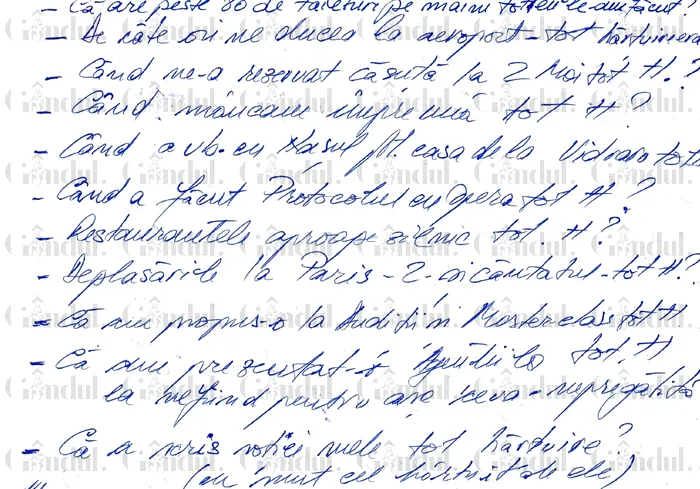 - Că are peste 80 de tatuaje pe maini tot
- De câte ori ne ducea la aeroport - tot hărțuirea
- Când ne-a rezervat căsuță la 2 Mai tot H.?
- Când mâncam împreună tot H?
- Când a vb. cu Nasul pt. casa de la Vidraru tot
- Când a făcut Protocolul cu Opera tot H?
- Restaurantele aproape zilnic tot. H?
- Deplasările la Paris - 2 - a cântatul - tot H?
- Că am propus-o la Audiții Masterclass tot H
- Că am prezentat-o tot. H
la nefiind pentru ceva - nepregătită
- Că a scris voției mele tot hărțuire?
(cu mut ele)
Gândul.